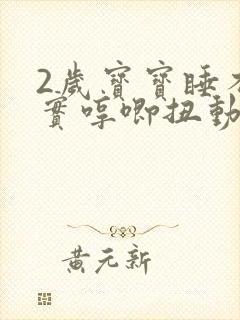 2歲寶寶睡不
實哼唧扭動
黃元新